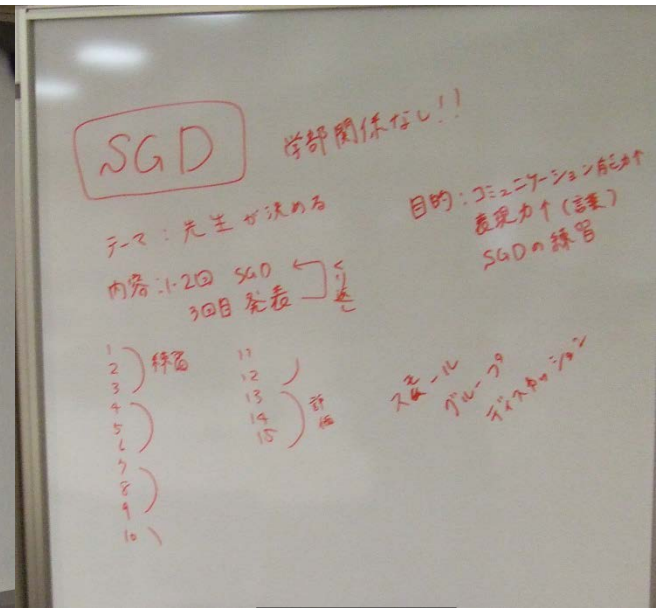 SGD
学部関係なし!!
テーマ:先生が決める
目的:コミュニケーション能力↑
表現力↑(言葉)
SGDの練習
内容:1・2回 SGD
3回目 発表
くり返し
1
2
3
練習
4
5
6
7
8
9
10
11
12
13
14
15
評価
スモール
グループ
ディスカッション